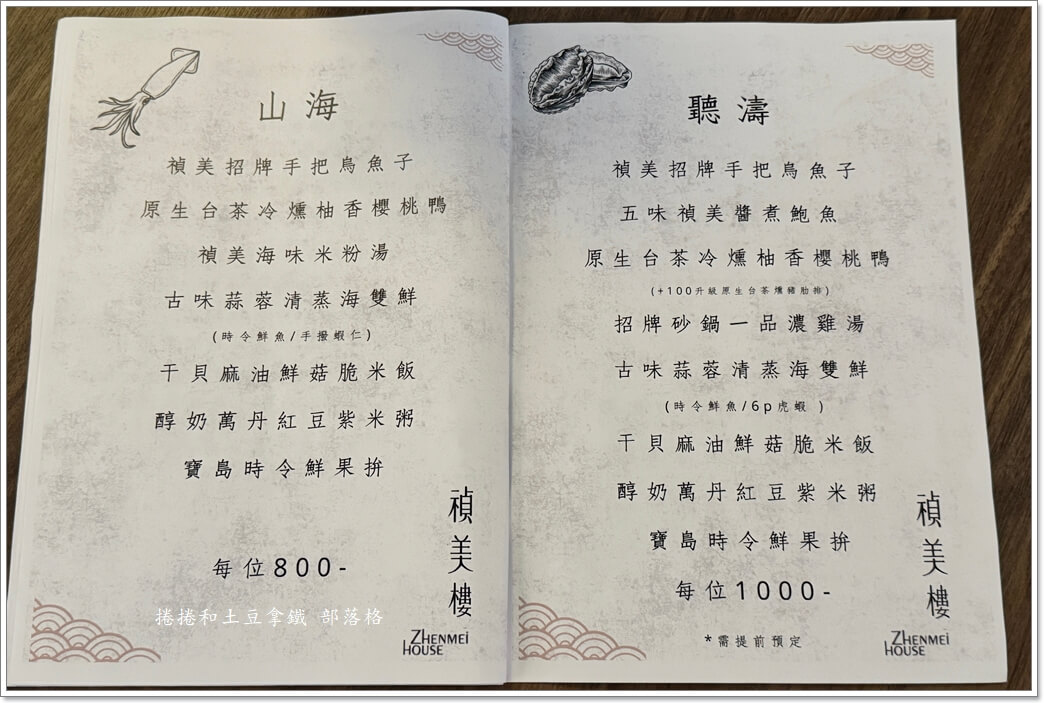 山海
禎美招牌手把烏魚子
原生台茶冷燻柚香櫻桃鴨
禎美海味米粉湯
古味蒜蓉清蒸海雙鮮
(時令鮮魚/手撥蝦仁)
干貝麻油鮮菇脆米飯
醇奶萬丹紅豆紫米粥
寶島時令鮮果拚
每位800-
禎美樓
ZHENMEI
HOUSE
捲捲和土豆拿鐵 部落格
聽濤
禎美招牌手把烏魚子
五味禎美醬煮鮑魚
原生台茶冷燻柚香櫻桃鴨
(+100升級原生台茶燻豬肋排)
招牌砂鍋一品濃雞湯
古味蒜蓉清蒸海雙鮮
(時令鮮魚/6p虎蝦 )
干貝麻油鮮菇脆米飯
醇奶萬丹紅豆紫米粥
寶島時令鮮果拚
每位1000-
*需提前預定
禎美樓
ZHENMEI
HOUSE